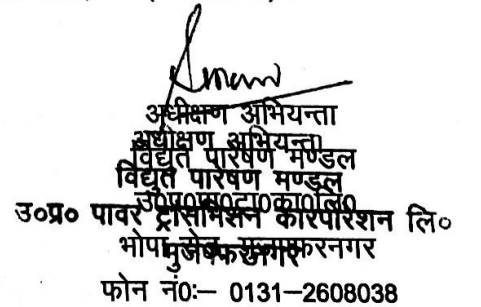 अधीक्षण अभियन्ता
अधीक्षण अभियन्ता
विद्युत पारेषण मण्डल
विद्युत पारेषण मण्डल
उ०प्र०पा०ट्रा०का०लि०
उ०प्र० पावर ट्रांसमिशन कारपोरेशन लि०
भोपा रोड, मुजफ्फरनगर
मुजफ्फरनगर
फोन नं0:– 0131–2608038